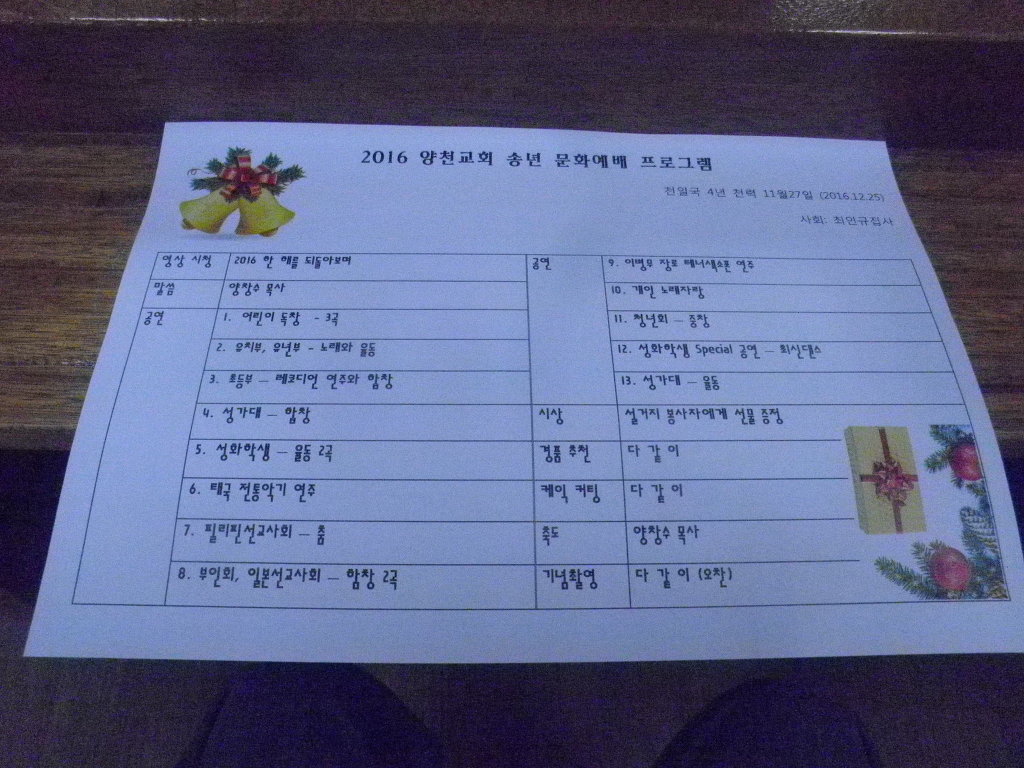 2016 양천교회 송년 문화예배 프로그램
천일국 4년 천력 11월27일 (2016.12.25)
사회: 최연규집사
영상 시청 2016 한 해를 되돌아보며
말씀 양창수 목사
공연 1. 어린이 독창 - 3곡
2. 유치부, 유년부 - 노래와 율동
3. 초등부 – 레코디언 연주와 합창
4. 성가대 – 합창
5. 성화학생 – 율동 2곡
6. 태국 전통악기 연주
7. 필리핀선교사회 – 춤
8. 부인회, 일본선교사회 – 합창 2곡
공연 9. 이병무 장로 테너색소폰 연주
10. 개인 노래자랑
11. 청년회 – 중창
12. 성화학생 Special 공연 – 최신댄스
13. 성가대 – 율동
시상 설거지 봉사자에게 선물 증정
경품 추천 다 같 이
케익 커팅 다 같 이
축도 양창수 목사
기념촬영 다 같 이 (오찬)